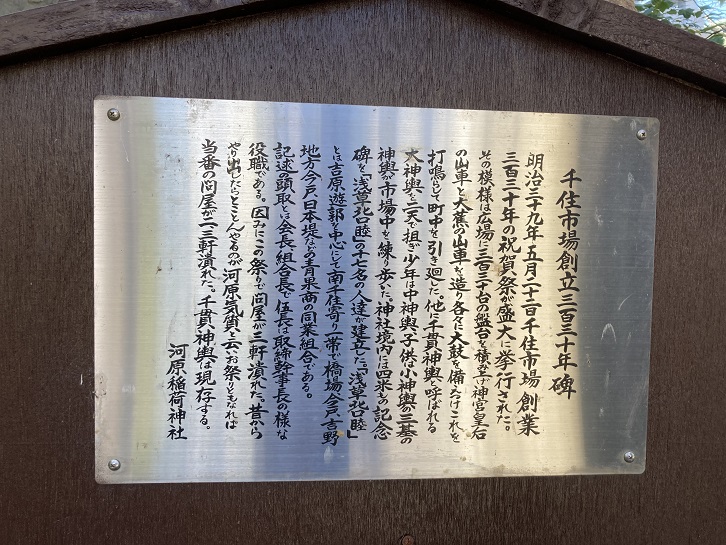 千住市場創立三百三十年碑
明治三十九年五月二十二日千住市場創業
三百三十年の祝賀祭が盛大に挙行された。
その模様は広場に三百三十台の盤台を積上げ神宮皇后
の山車と大蕪の山車を造り各々に大鼓を備え付けこれを
打鳴らして町中を引き廻した。他に千貫神輿と呼ばれる
大神輿を二天で担ぎ少年は中神輿、子供は小神輿が三基の
神輿が市場中を練り歩いた。神社境内には四米もの記念
碑を「浅草北口睦」の十七名の人達が建立した。「浅草北口睦」
とは吉原遊郭を中心にして南千住寄り一帯で橋場今戸、吉野
地方今戸日本堤などの青果商の同業組合である。
記述の頭取とは会長、組合長で伍長は取締幹事長の様な
役職である。因みにこの祭りで問屋が三軒潰れた。昔から
やり出したらとことんやるのが河原気質と云いお祭りともなれば
当番の問屋が二三軒潰れた。千貫神輿は現存する。
河原稲荷神社